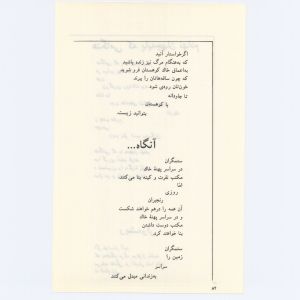 اگر خواستار آنید
که به‌هنگام مرگ نیز زنده باشید
به‌اعماق خاک کوهستان فرو شوید
که چون ساقه‌هاتان را ببرند
خون‌تان رودی شود
تا جاودانه
با کوهستان
بتوانید زیست.
آنگاه...
ستمگران
در سراسر پهنهٔ خاک
مکتب نفرت و کینه بنا می‌کنند.
اما
روزی
رنجبران
آن همه را درهم خواهند شکست
و در سراسر پهنهٔ خاک
مکتب دوست داشتن
بنا خواهند کرد.
ستمگران
زمین را
سراسر
به‌زندانی مبدل می‌کنند
۸۲